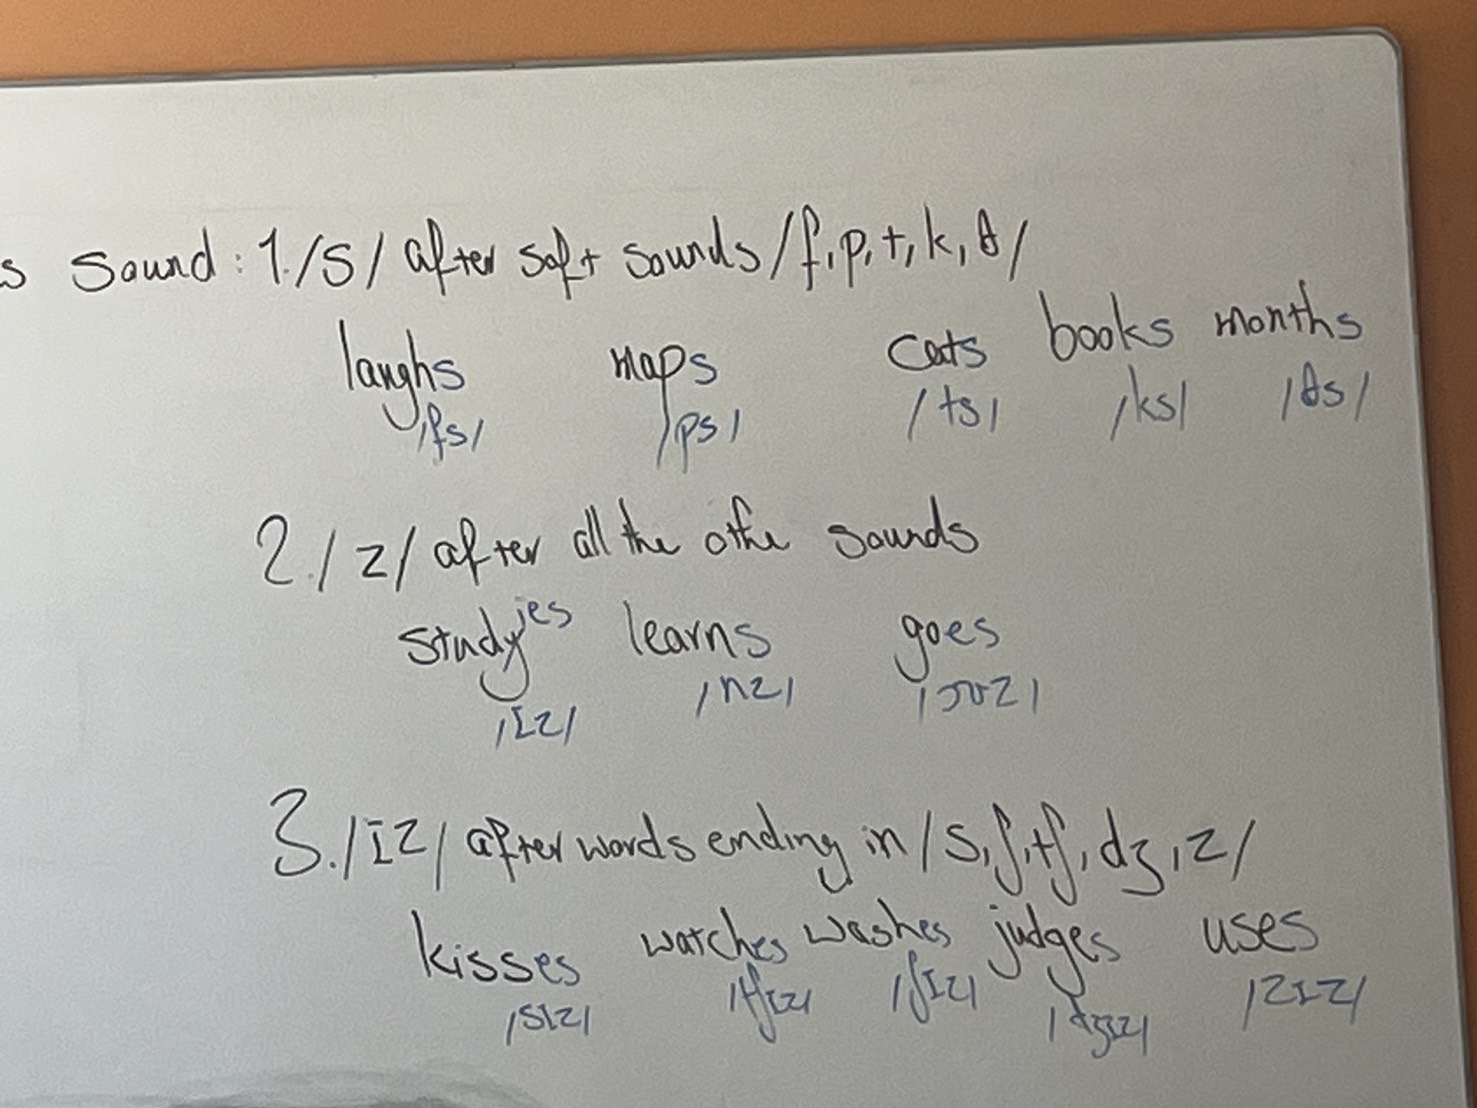 s Sound: 1. /s/ after soft sounds /f, p, t, k, θ/
laughs maps cats books months
/fs/ /ps/ /ts/ /ks/ /θs/
2. /z/ after all the othe sounds
studyies learns goes
/ɪz/ /nz/ /əʊz/
3. /ɪz/ after words ending in /s, ʃ, tʃ, dʒ, z/
kisses watches washes judges uses
/sɪz/ /tʃɪz/ /ʃɪz/ /dʒɪz/ /zɪz/